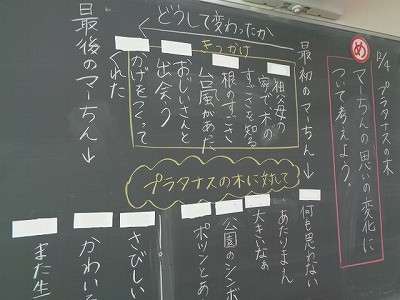 12/4
プラタナスの木
め
マーちんの思いの変化に
ついて考えよう。
最初のマーちん→
何も思わない
あたりまえ
大きいなぁ
公園のシンボ
ポツンとあ
どうして変わったか
きっかけ
祖父母の
家で、木の
すごさを知る
根のすごさ
台風があた
おじいさんと
出会う
かげをつくって
くれた
プラタナスの木に対して
最後のマーちん→
さびしい
かわいそ
また生